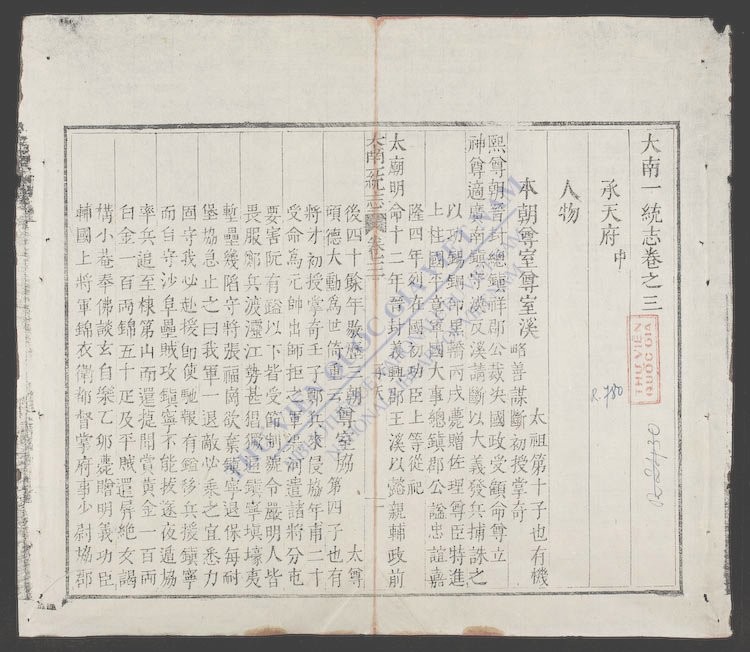 大南一統志卷之三
承天府中
人物
本朝尊室尊室溪
太祖第十子也有機
略善謀斷初授掌奇
熙尊朝晉封總鎮祥郡公裁決國政受顧命尊立
神尊適廣南鎮守渶反溪請斷以大義發兵捕誅之
以功朝錫印黑轎丙戌薨贈佐理尊臣特進
上柱國平章軍國大事總鎮郡公謚忠誼嘉
隆四年列在國初功臣上等從祀
太廟明命十二年晉封義興郡王溪以懿親輔政前
大南一統志 卷之三
後四十餘年歇歷三朝
碩德大勳為世倚重云
尊室協
太尊
第四子也有
將才初授掌奇壬子鄭兵來侵協年甫二十
受命為元帥出師拒之軍平河遣諸將分屯
要害阮有鎰以下皆受節制號令嚴明人皆
畏服鄭兵渡瀍江勢甚猖獗逼鎮寧填壕夷
塹壘幾陷守將張福崗欲棄鎮寧退保每耐
堡協急止之曰我軍一退敵必乘之宜悉力
固守我必赴援即使馳報有鎰移兵援鎮寧
而自守沙阜壘賊攻鎮寧不能拔遂夜遁協
率兵追至棟第山而還捷聞賞黃金一百兩
白金一百兩錦五十疋及平賊還屏絕女謁
構小菴奉佛談玄自樂乙卯薨贈明義功臣
輔國上將軍錦衣衛都督掌府事少尉協郡
THƯ VIỆN
QUỐC GIA
R.780
R.2430